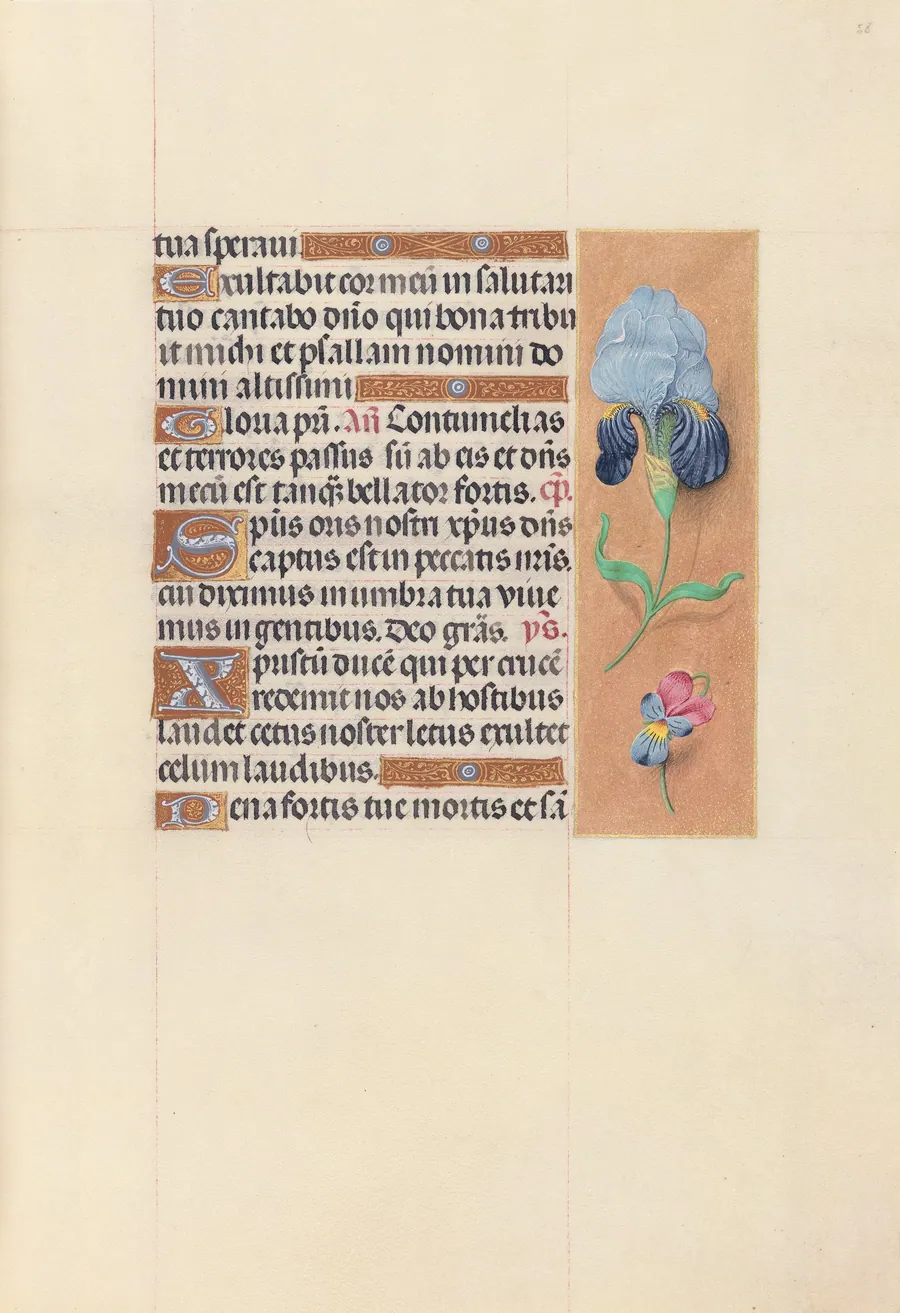 58
tua speraui
Exultabit cor meū in salutari
tuo cantabo dn̄o qui bona tribu
it michi et psallam nomini do
mini altissimi
Gloria pr̄i. An̄ Contumelias
et terrores passus sū ab eis et dn̄s
mecū est tanq̄ꝫ bellator fortis. cp̄.
Sp̄us oris nostri xp̄us dn̄s
captus est in peccatis nr̄is.
cui diximus in umbra tua viue
mus in gentibus. Deo grãs. ys̄.
Xpustū ducē qui per crucē
redemit nos ab hostibus
laudet cetus noster letus exultet
celum laudibus.
Pena fortis tue mortis et sã